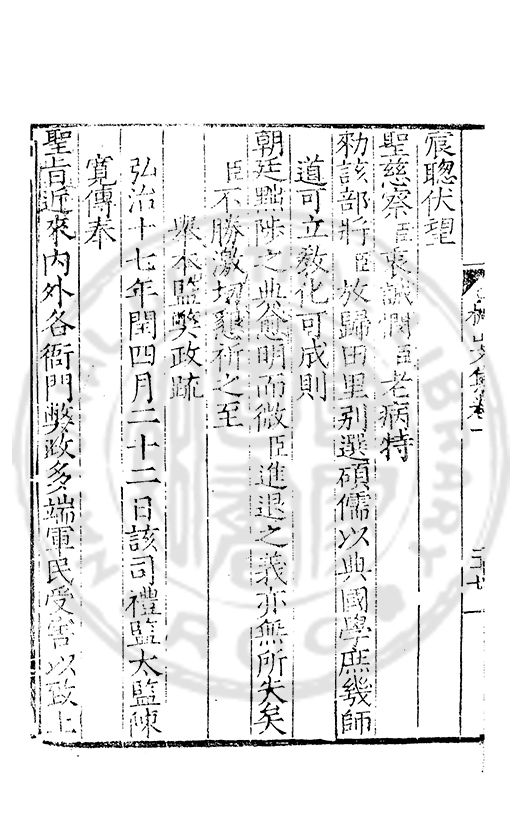 宸聰伏望
聖慈察臣衷誠憫臣老病特
勑該部將臣放歸田里别選碩儒以典國學庶幾師
道可立敎化可成則
朝廷黜陟之典愈明而微臣進退之義亦無所失矣
臣不勝激切懇祈之至
舉本監弊政疏
弘治十七年閏四月二十二日該司禮監太監陳
寛傳奉
聖旨近來内外各衙門弊政多端軍民受害以致上